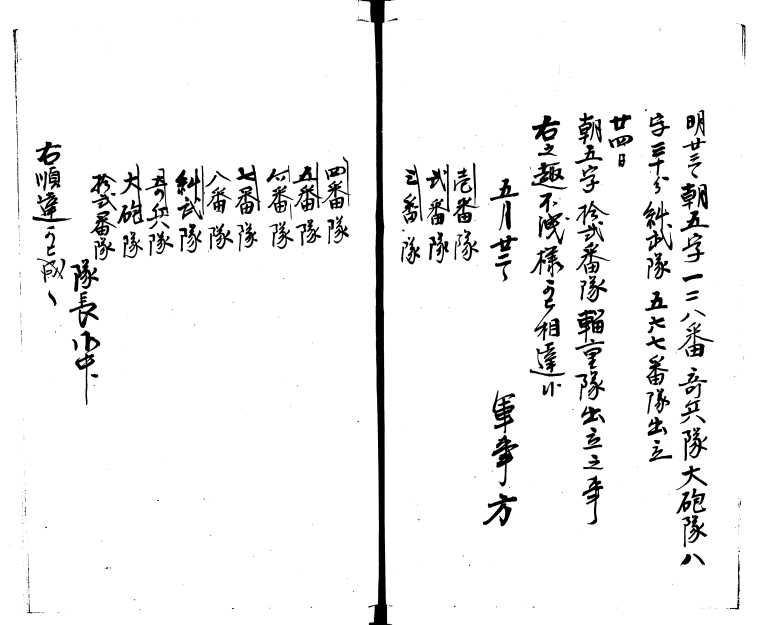 明廿三日朝五字一二八番奇兵隊大砲隊八
字三十分糾武隊五六七番隊出立
廿四日
朝五字拾弐番隊輜重隊出立之事
右之趣不洩様可相達候
五月廿二日
軍事方
壱番隊
弐番隊
三番隊
四番隊
五番隊
六番隊
七番隊
八番隊
糾武隊
奇兵隊
大砲隊
拾弐番隊
隊長御中
右順達可被成候